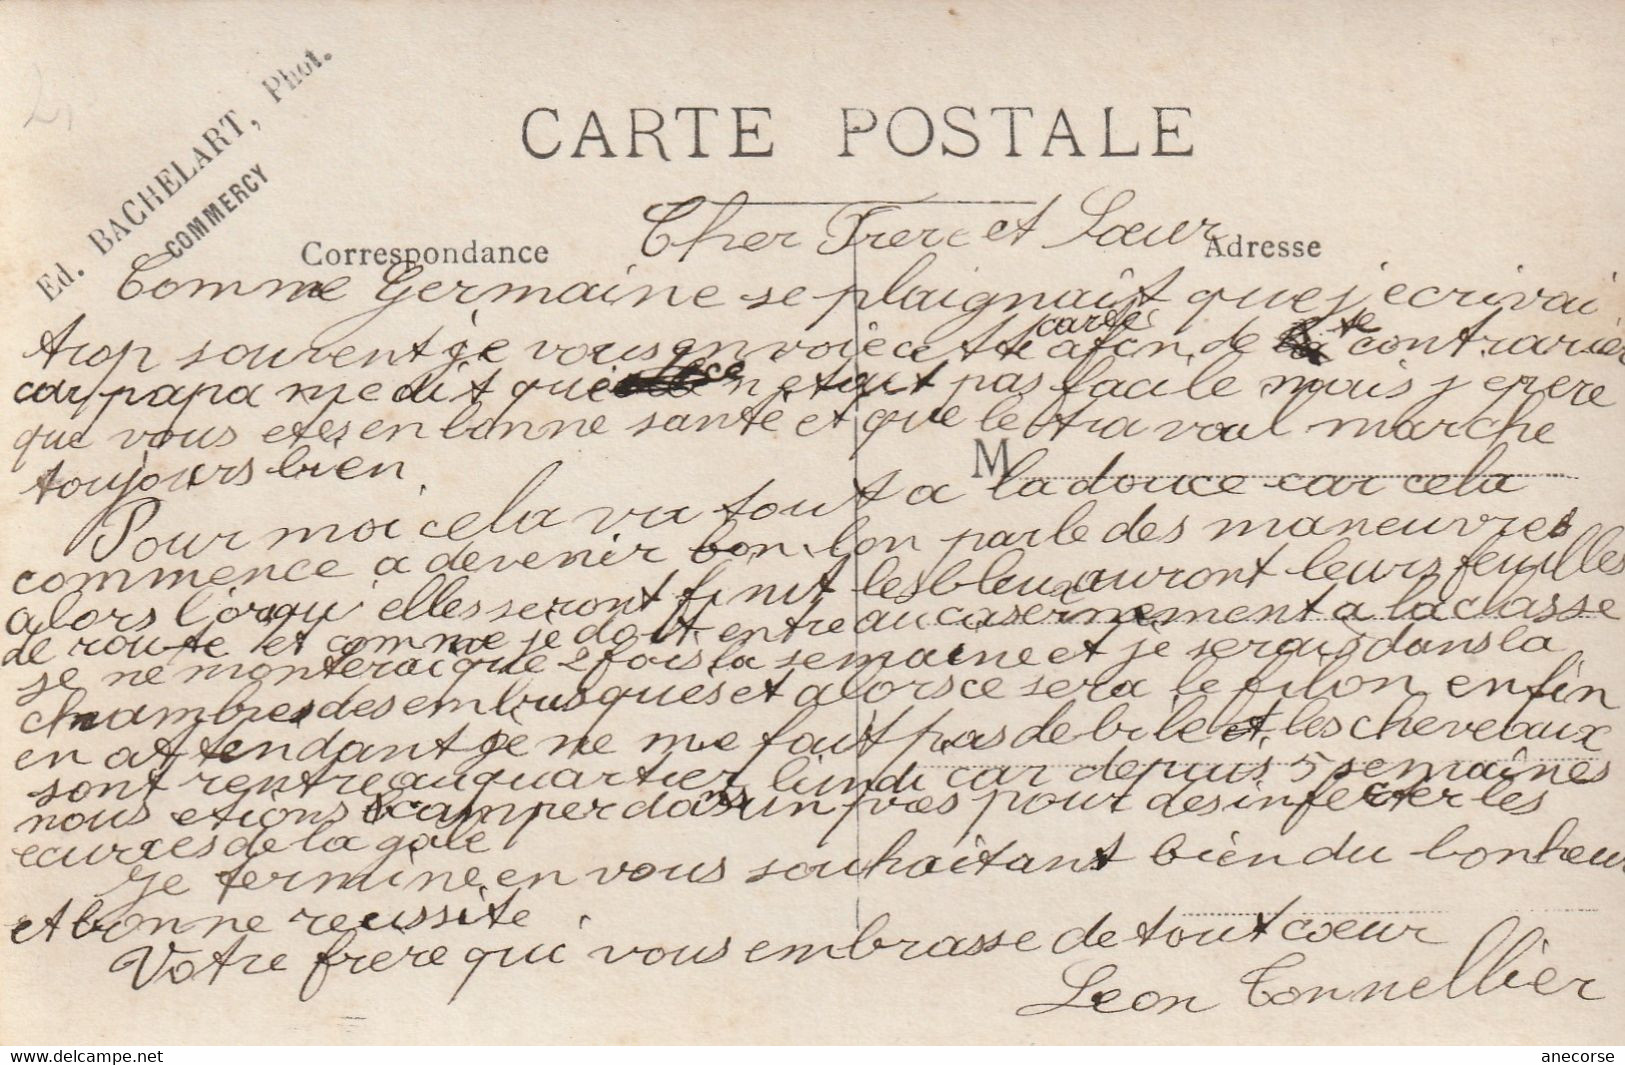 Ed. BACHELART, Phot.
COMMERCY
CARTE POSTALE
Correspondance
Adresse
M
Cher Frere et Sœur
Comme Germaine se plaignait que j'ecrivai
trop souvent je vous envoie cette carte afin de te contrarier
car papa me dit que ce n'etait pas facile mais j'epere
que vous etes en bonne santé et que le travail marche
toujours bien
Pour moi cela va tout a la douce car cela
commence a devenir bon, on parle des maneuvres
alors l'orqu'elles seront finit les bleux auront leurs feuilles
de route et comme je doit entre au casernement a la classe
je ne monterai que 2 fois la semaine et je serais dans la
chambre des embusques et alors ce sera le filon enfin
en attendant je ne me fait pas de bile et les cheveaux
sont rentre au quartier lundi car depuis 5 semaines
nous etions camper dans un pres pour desinfecter les
ecuries de la gale
Je termine en vous souhaitant bien du bonheur
et bonne reussite
Votre frere qui vous embrasse de tout cœur
Leon Tonnellier
delcampe.net
anecorse